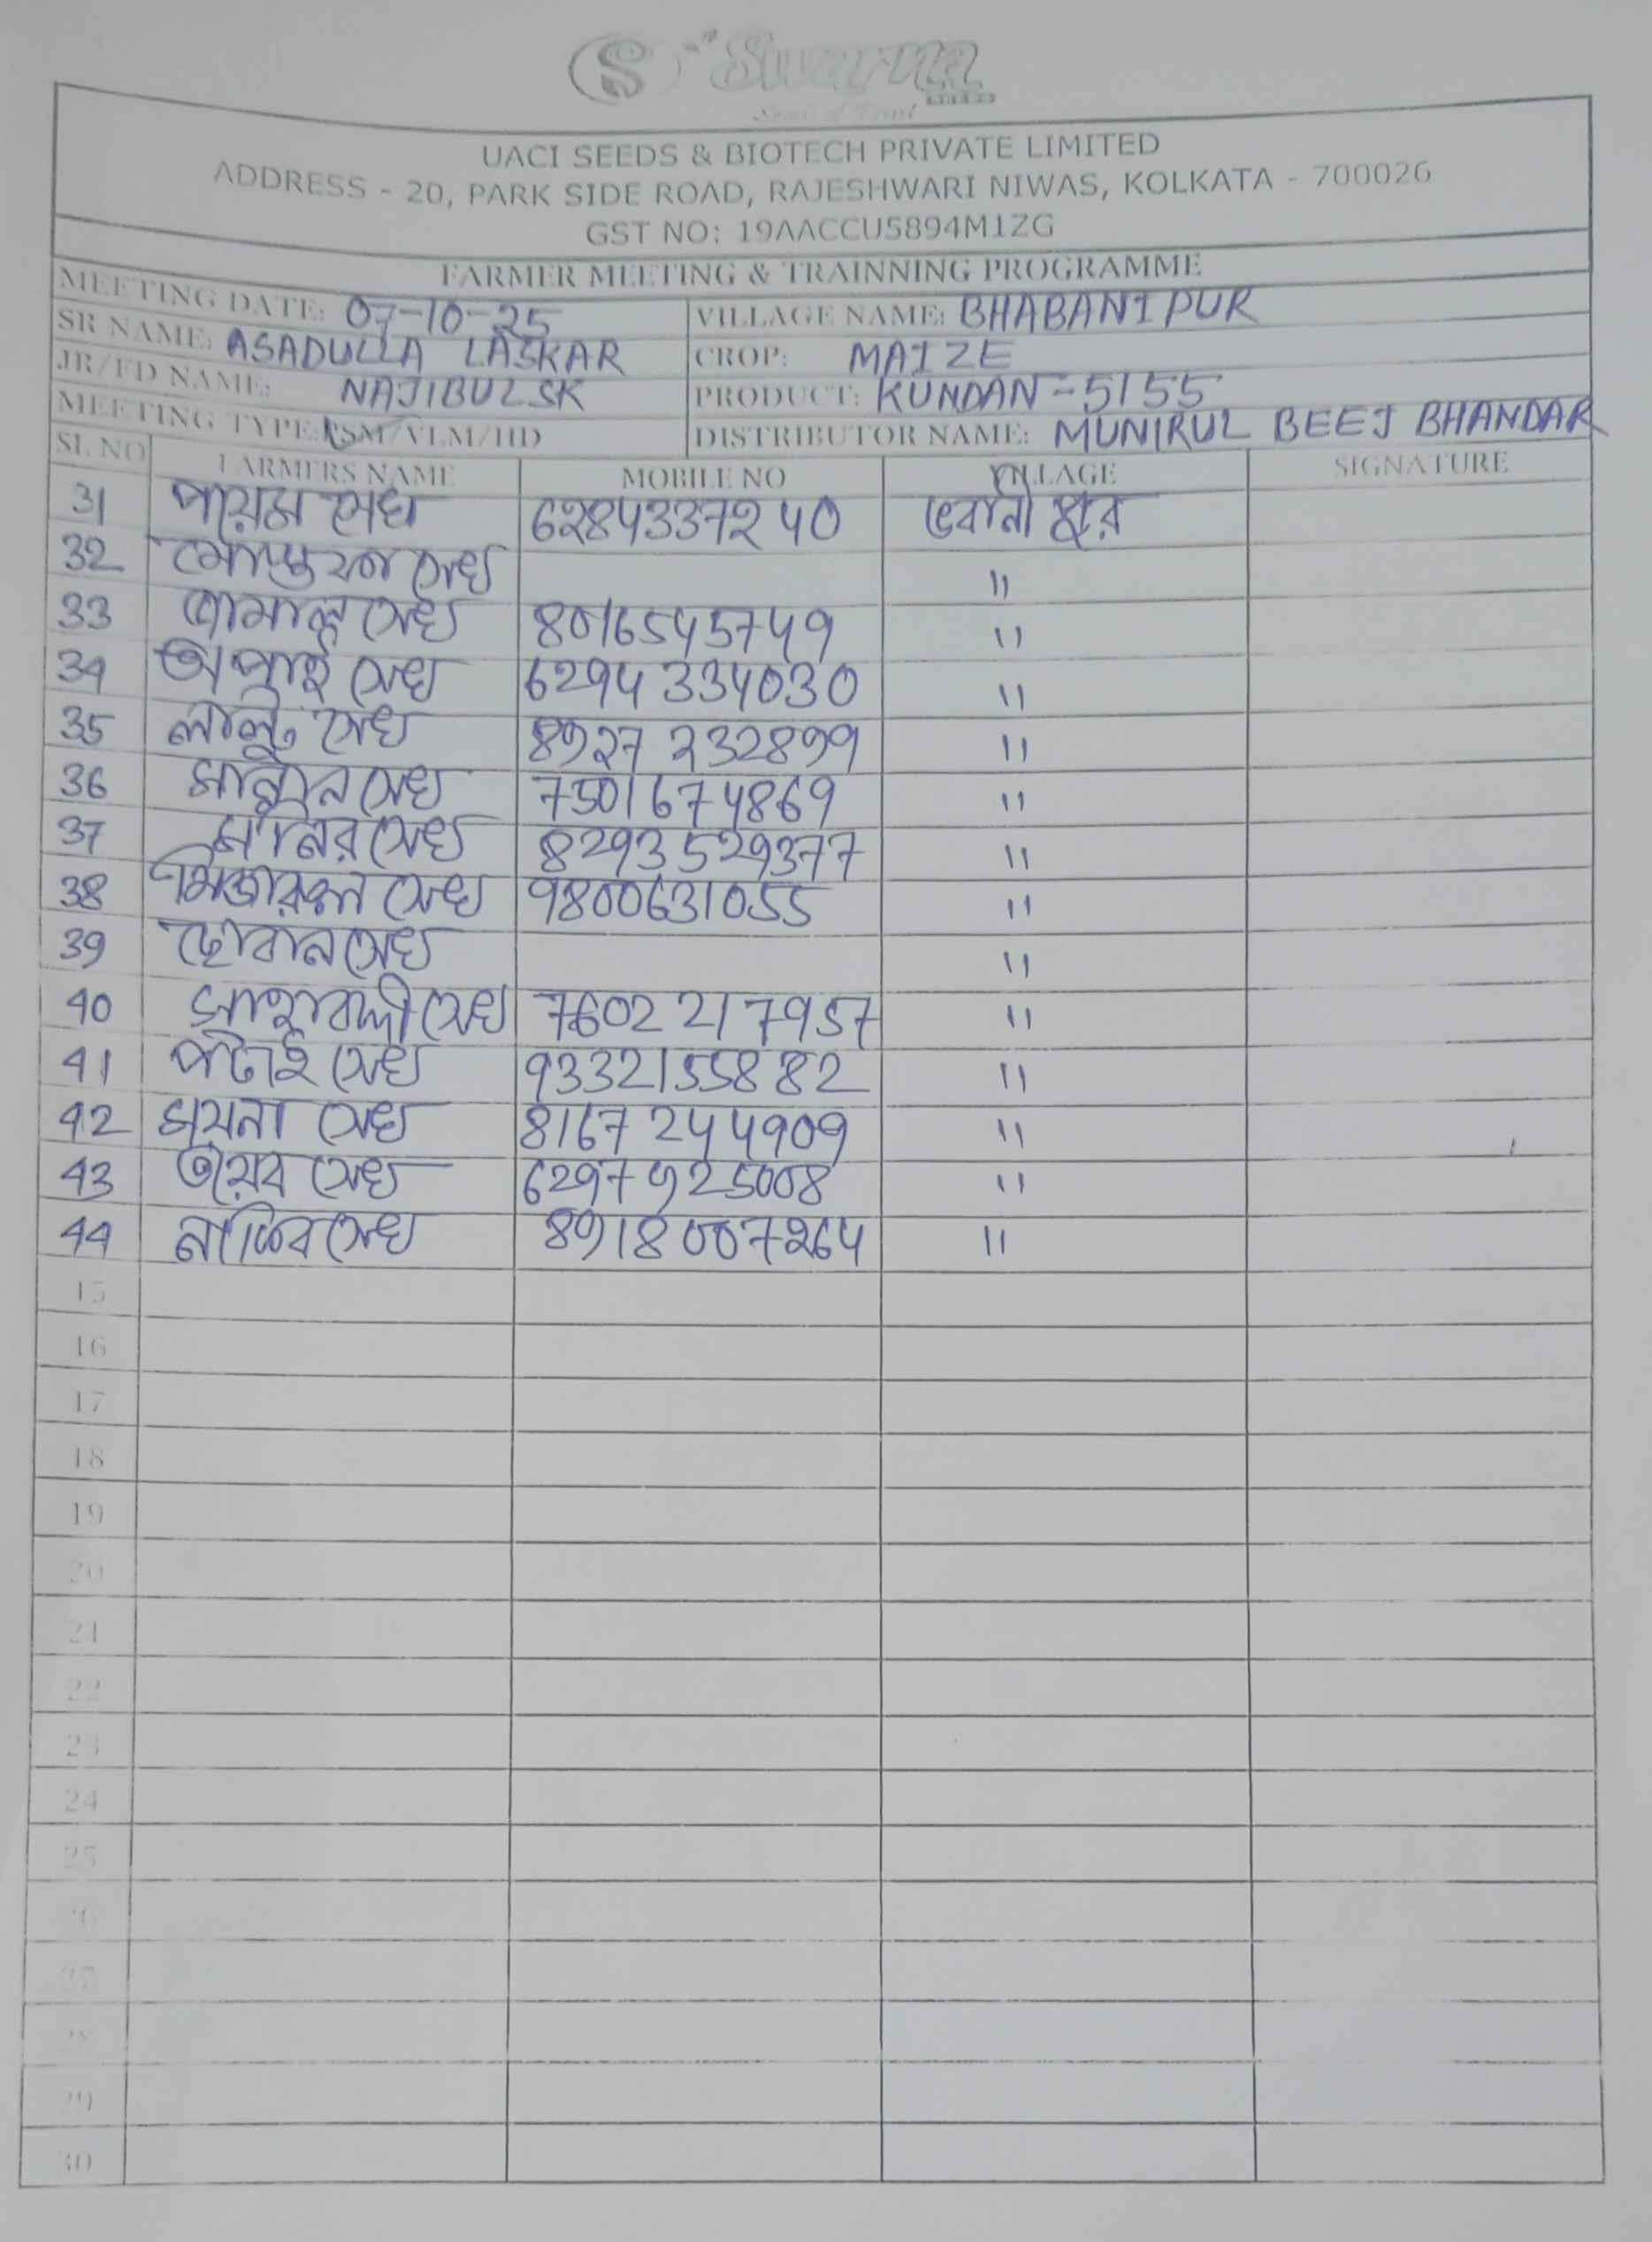 S Swarna
Seeds of Trust
UACI SEEDS & BIOTECH PRIVATE LIMITED
ADDRESS - 20, PARK SIDE ROAD, RAJESHWARI NIWAS, KOLKATA - 700026
GST NO: 19AACCU5894M1ZG
FARMER MEETING & TRAINNING PROGRAMME
MEETING DATE: 07-10-25 VILLAGE NAME: BHABANIPUR
SR NAME: ASADULLA LASKAR CROP: MAIZE
JR/FD NAME: NAJIBUL SK PRODUCT: KUNDAN-5155
MEETING TYPE: PSM/VLM/HD DISTRIBUTOR NAME: MUNIRUL BEEJ BHANDAR
SL NO FARMERS NAME MOBILE NO VILLAGE SIGNATURE
31 সেখ 6284337240 ভবানী
32 সেখ "
33 সেখ 8016545749 "
34 সেখ 6294334030 "
35 লালু সেখ 8927232899 "
36 সেখ 7501674869 "
37 মনির সেখ 8293529377 "
38 সেখ 9800631055 "
39 সেখ "
40 সেখ 7602217957 "
41 পটাই সেখ 9332155882 "
42 ময়না সেখ 8167244909 "
43 তয়েব সেখ 6297925008 "
44 সেখ 8918007264 "
15
16
17
18
19
20
21
22
23
24
25
26
27
28
29
30